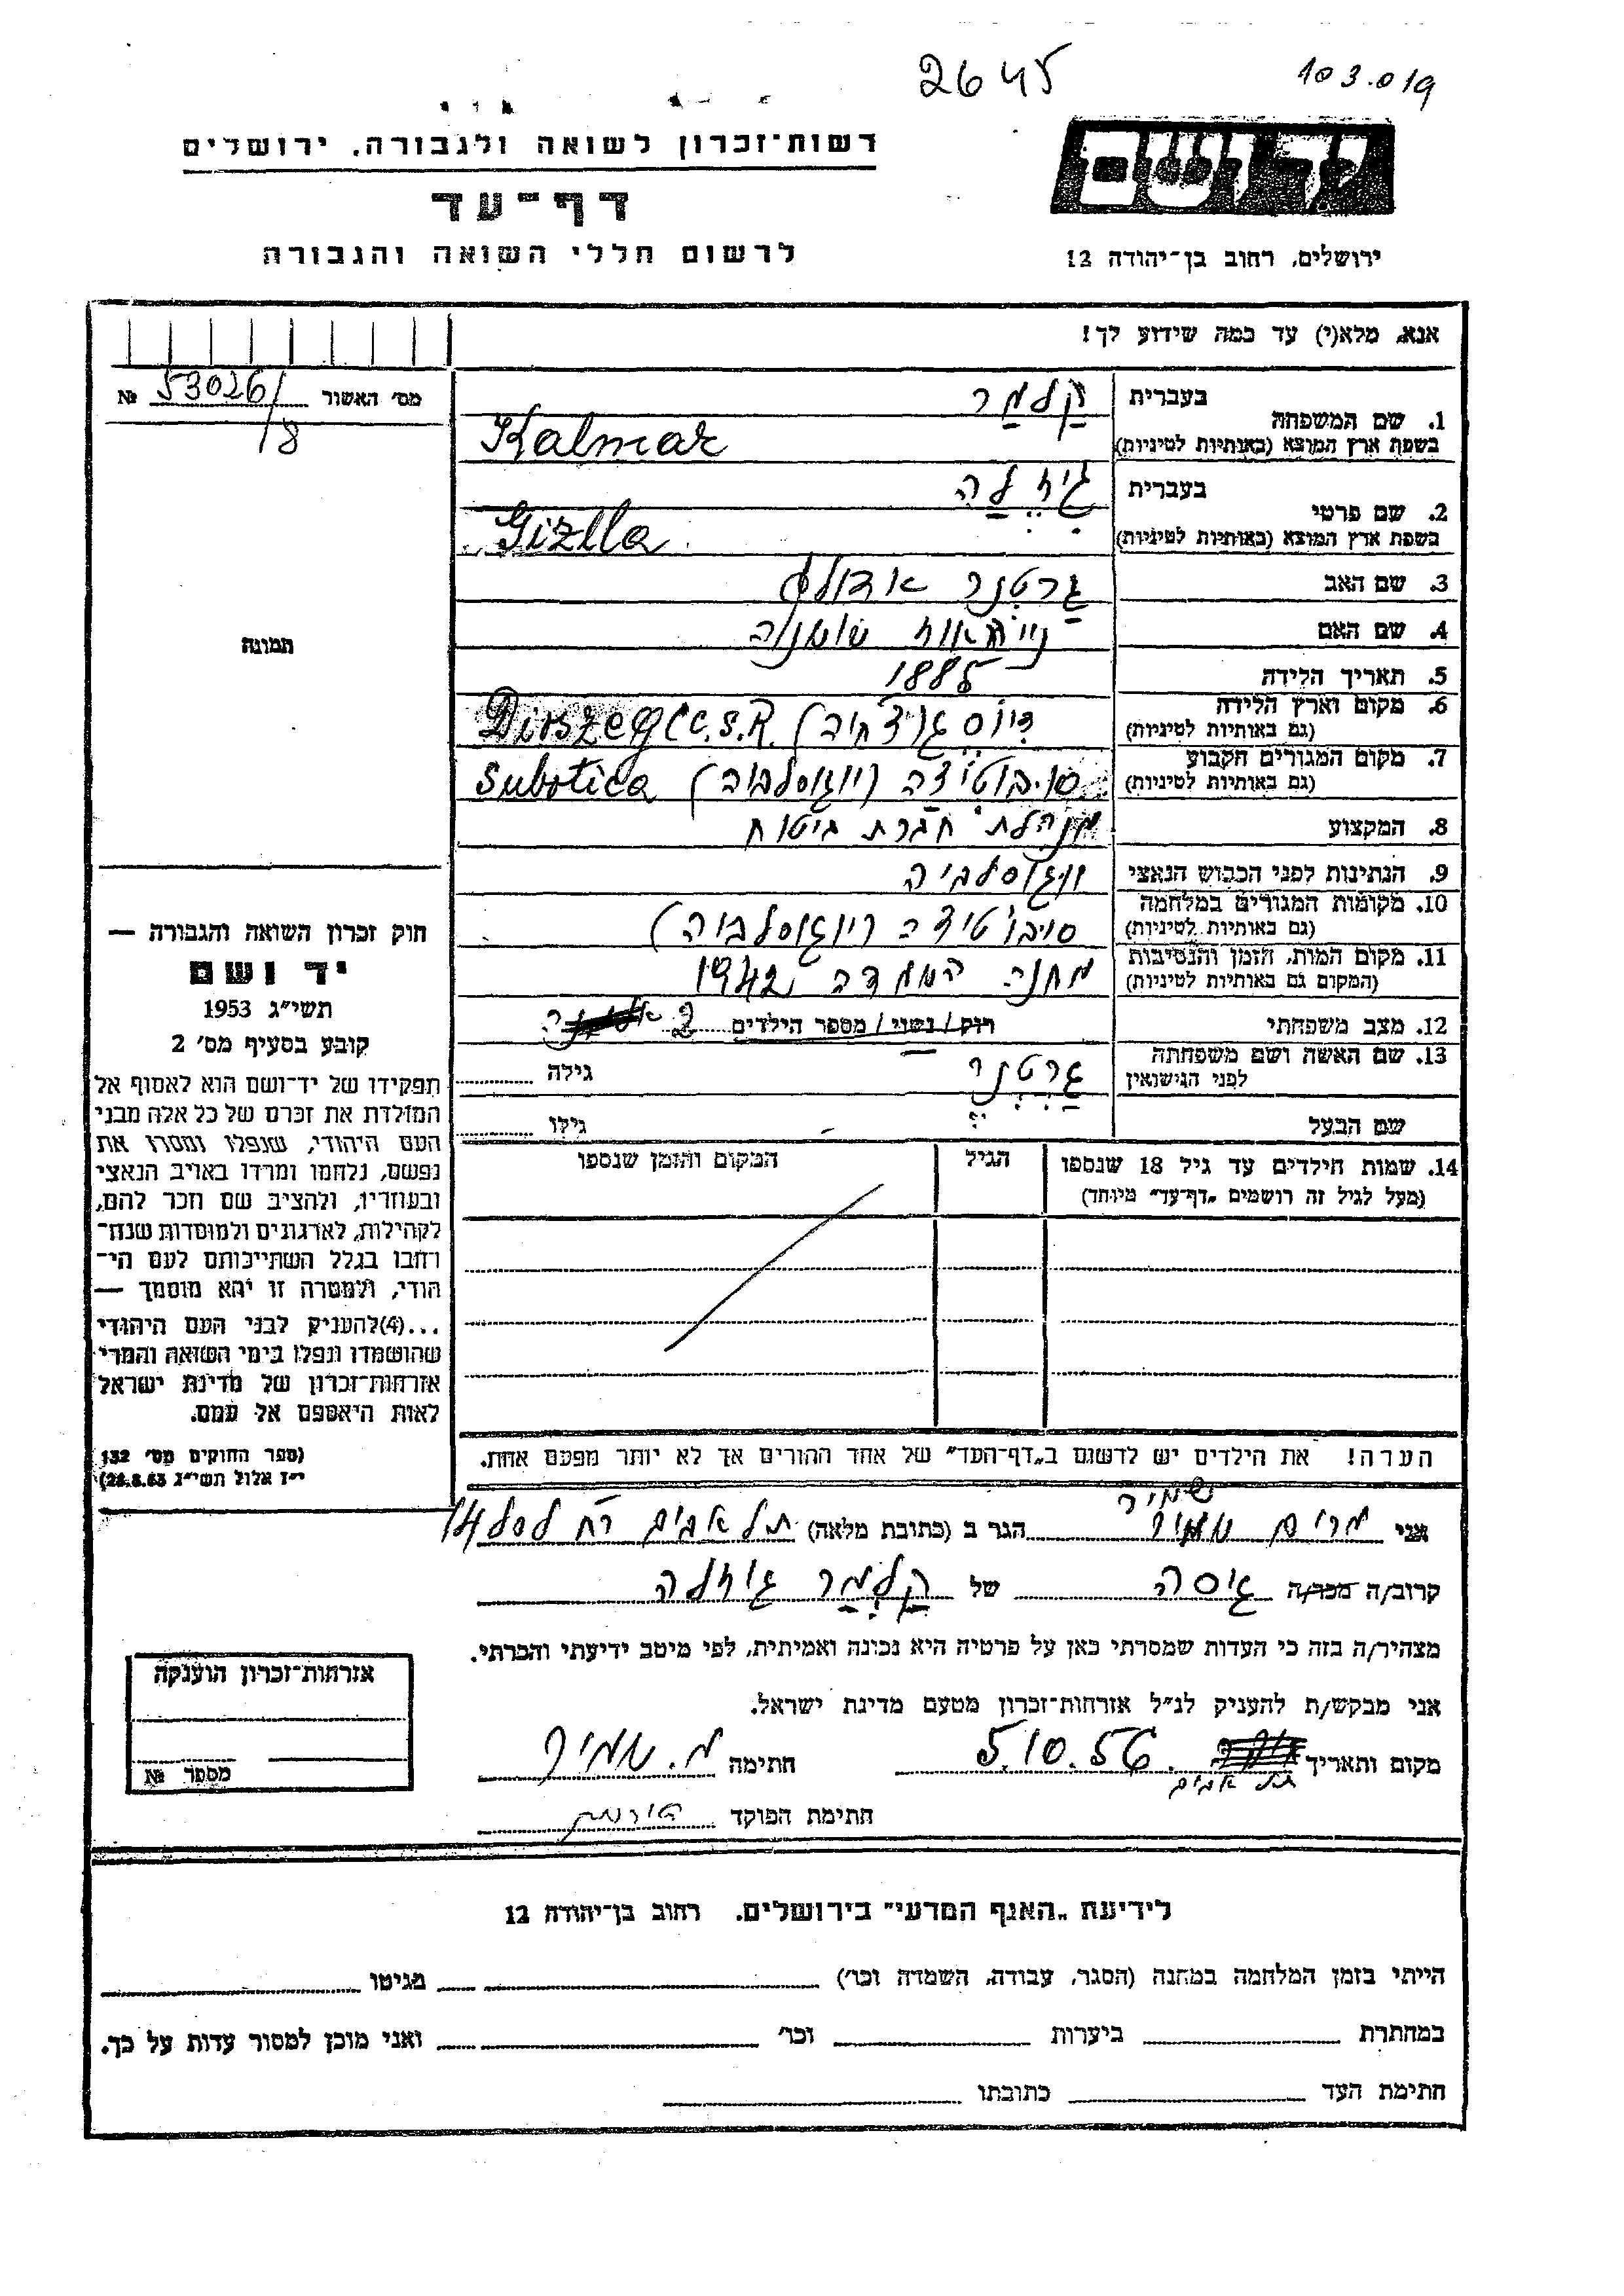 2645
103.019
רשות־זכרון לשואה ולגבורה, ירושלים
דף־עד
לרשום חללי השואה והגבורה
יד ושם
ירושלים, רחוב בן־יהודה 12
אנא, מלא(י) עד כמה שידוע לך!
מס' האשור 53026/ №
/8
תמונה
1. שם המשפחה בעברית קלמר
בשפת ארץ המוצא (באותיות לטיניות) Kalmar
2. שם פרטי בעברית גיזלה
בשפת ארץ המוצא (באותיות לטיניות) Gizlla
3. שם האב גרטנר אדולף
4. שם האם
5. תאריך הלידה 1885
6. מקום וארץ הלידה
(גם באותיות לטיניות) Diószeg (C.S.R.)
7. מקום המגורים הקבוע
(גם באותיות לטיניות) סובוטיצה (יוגוסלביה) Subotica
8. המקצוע מנהלת חברת ביטוח
9. הנתינות לפני הכבוש הנאצי יוגוסלביה
10. מקומות המגורים במלחמה
(גם באותיות לטיניות) סובוטיצה (יוגוסלביה)
11. מקום המות, הזמן והנסיבות
(המקום גם באותיות לטיניות) מחנה השמדה 1942
12. מצב משפחתי רוק/נשוי/מספר הילדים 2
13. שם האשה ושם משפחתה
לפני הנישואין גרטנר גילה
שם הבעל גילו
14. שמות הילדים עד גיל 18 שנספו הגיל המקום והזמן שנספו
(מעל לגיל זה רושמים „דף־עד" מיוחד)
חוק זכרון השואה והגבורה —
יד ושם
תשי"ג 1953
קובע בסעיף מס' 2
תפקידו של יד־ושם הוא לאסוף אל
המולדת את זכרם של כל אלה מבני
העם היהודי, שנפלו ומסרו את
נפשם, נלחמו ומרדו באויב הנאצי
ובעוזריו, ולהציב שם וזכר להם,
לקהילות, לארגונים ולמוסדות שנח־
רחבו בגלל השתייכותם לעם הי־
הודי, ולמטרה זו יהא מוסמך —
...(4)להעניק לבני העם היהודי
שהושמדו ונפלו בימי השואה והמרי
אזרחות־זכרון של מדינת ישראל
לאות היאספם אל עמם.
(ספר החוקים מס' 132
י"ז אלול תשי"ג 28.8.53)
הערה! את הילדים יש לרשום ב„דף־העד" של אחד ההורים אך לא יותר מפעם אחת.
שמיר
אני מרים שמיר הגר ב (כתובת מלאה) תל אביב רח' לסל 14
קרוב/ה מכר/ה גיסה של קלמר גיזלה
מצהיר/ה בזה כי העדות שמסרתי כאן על פרטיה היא נכונה ואמיתית, לפי מיטב ידיעתי והכרתי.
אני מבקש/ת להעניק לנ"ל אזרחות־זכרון מטעם מדינת ישראל.
מקום ותאריך 5.10.56 חתימה מ. שמיר
תל אביב
חתימת הפוקד
אזרחות־זכרון הוענקה
מספר №
לידיעת „האגף המדעי" בירושלים. רחוב בן־יהודה 12
הייתי בזמן המלחמה במחנה (הסגר, עבודה, השמדה וכו') מגיטו
במחתרת ביערות וכו' ואני מוכן למסור עדות על כך.
חתימת העד כתובתו